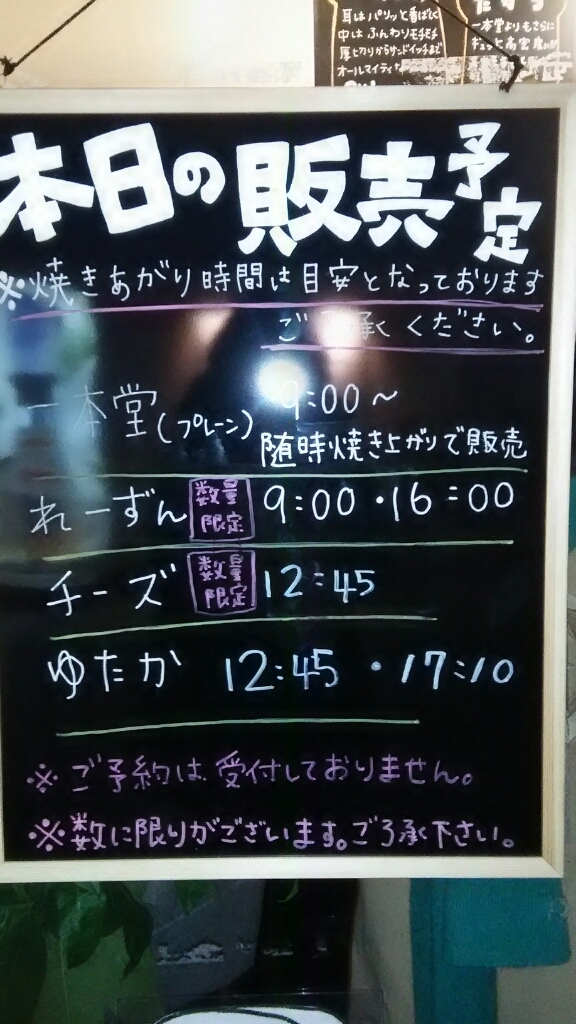 耳はパリッと香ばしく
中はふんわりモチモチ
厚切りからサンドイッチまで
オールマイティ
一本堂よりもさらに
本日の販売予定
※焼きあがり時間は目安となっております
ご 承ください。
一本堂(プレーン) 9:00～
随時焼き上がりで販売
れーずん 数量限定 9:00・16:00
チーズ 数量限定 12:45
ゆたか 12:45・17:10
※ご予約は受付しておりません。
※数に限りがございます。ご了承下さい。